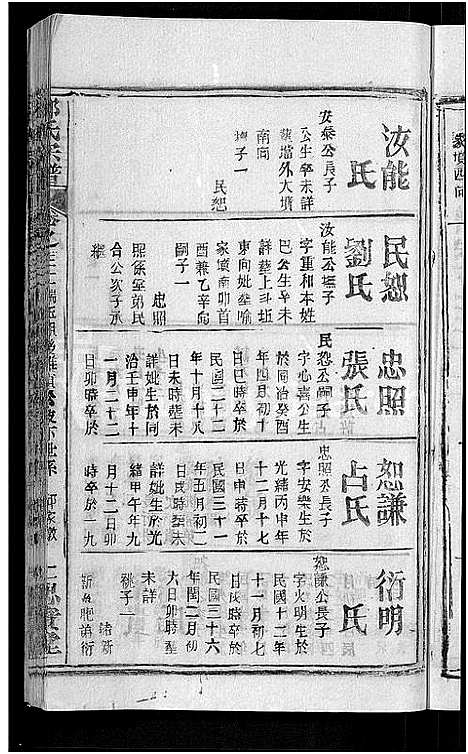 汝能
氏
安泰公長子
公生卒未詳
葬壋外大墳
南向
撫子一
民恕
民恕
劉氏
汝能公撫子
字重和本姓
巴公生卒未
詳葬上斗班
東向妣葬喻
家墳南卯首
酉兼乙辛向
嗣子一
忠照
照係堂弟民
合公次子承
繼
忠照
張氏
民恕公嗣子
字心喜公生
於同治癸酉
年四月初十
日巳時卒於
民國二十二
年十月十八
日未時葬未
詳妣生於同
治壬申年十
一月二十二
日卯時卒於
恕謙
占氏
忠照公長子
字安樂生於
光緒丙申年
十二月十七
日申時卒於
民國三十一
年五月初二
日戌時葬未
詳妣生於光
緒甲午年九
月十二日卯
時卒於一九
衍明
氏
恕謙公長子
字火明生於
民國十二年
十一月初七
日戌時卒於
民國三十六
年閏二月初
六日卯時葬
未詳
祧子一
緒新
新為胞弟衍
氏宗譜
家墳西向